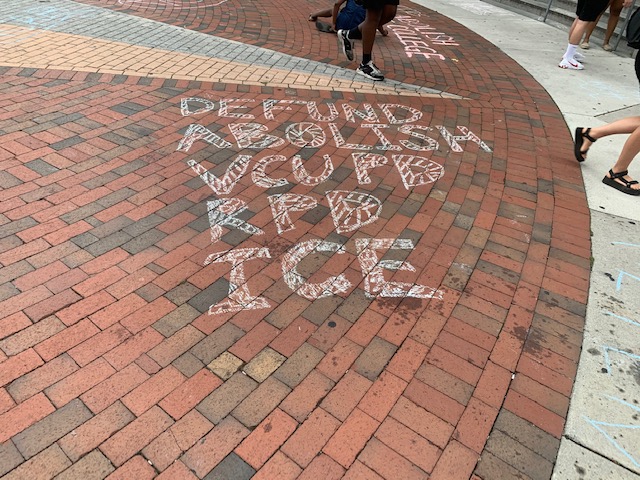 DEFUND
ABOLISH
VCUPD
RPD
ICE